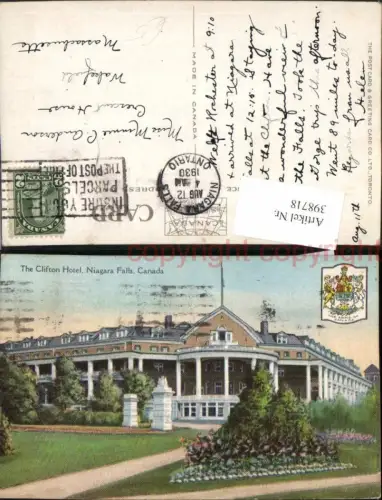 THE POST CARD & GREETING CARD CO. LTD., TORONTO.
Aug 11th
Left Rochester at 9:10
& arrived at Niagara
Falls at 12:15. Staying
at the Clifton. Have
a wonderful view of
the Falls. Took the
Gorge trip this afternoon.
Went 89 miles to-day.
from us all
Helen
MADE IN CANADA
Miss Minnie C. Anderson
House
Wakefield
Massachusetts
INSURE YOUR
PARCELS
THE POST OFFICE
NIAGARA FALLS
AUG 12
1930
ONTARIO
CARD
Artikel Nr.
398718
copyright copyright
The Clifton Hotel, Niagara Falls, Canada